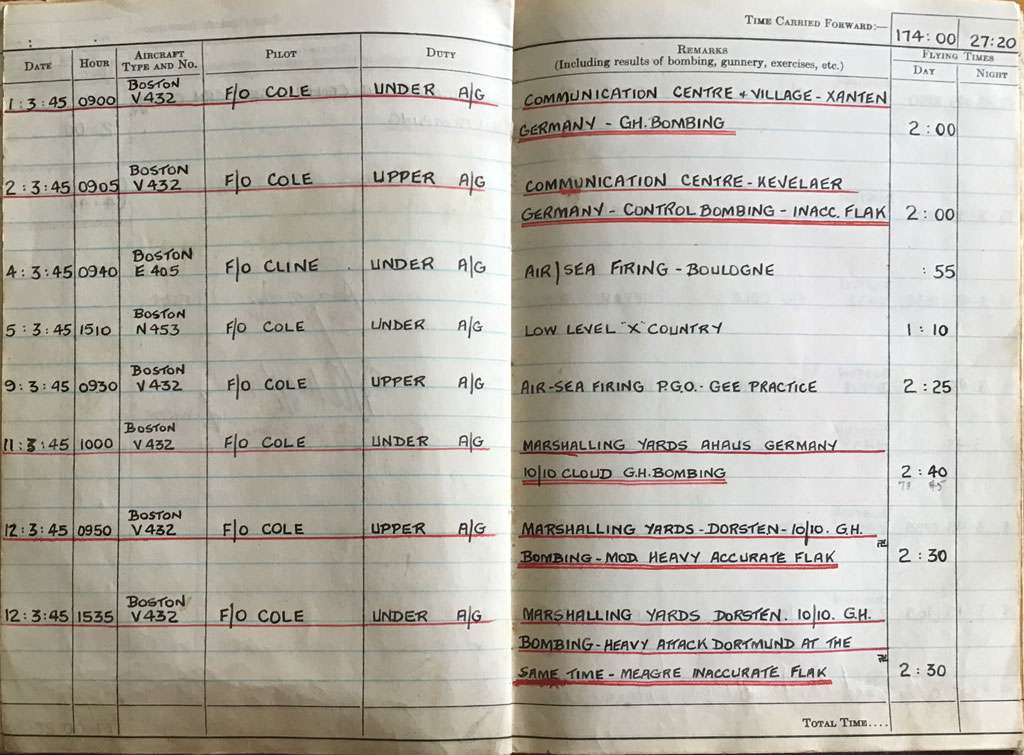 TIME CARRIED FORWARD:— 174:00 27:20
DATE HOUR AIRCRAFT TYPE AND NO. PILOT DUTY REMARKS (Including results of bombing, gunnery, exercises, etc.) FLYING TIMES DAY NIGHT
1:3:45 0900 BOSTON V432 F/O COLE UNDER A/G COMMUNICATION CENTRE + VILLAGE - XANTEN
GERMANY - GH. BOMBING 2:00
2:3:45 0905 BOSTON V432 F/O COLE UPPER A/G COMMUNICATION CENTRE - KEVELAER
GERMANY - CONTROL BOMBING - INACC. FLAK 2:00
4:3:45 0940 BOSTON E 405 F/O CLINE UNDER A/G AIR/SEA FIRING - BOULOGNE :55
5:3:45 1510 BOSTON N453 F/O COLE UNDER A/G LOW LEVEL "X" COUNTRY 1:10
9:3:45 0930 BOSTON V432 F/O COLE UPPER A/G AIR-SEA FIRING P.G.O. - GEE PRACTICE 2:25
11:3:45 1000 BOSTON V432 F/O COLE UNDER A/G MARSHALLING YARDS AHAUS GERMANY
10/10 CLOUD G.H. BOMBING 2:40
12:3:45 0950 BOSTON V432 F/O COLE UPPER A/G MARSHALLING YARDS - DORSTEN - 10/10. G.H.
BOMBING - MOD. HEAVY ACCURATE FLAK 2:30
12:3:45 1535 BOSTON V432 F/O COLE UNDER A/G MARSHALLING YARDS DORSTEN. 10/10. G.H.
BOMBING - HEAVY ATTACK DORTMUND AT THE
SAME TIME - MEAGRE INACCURATE FLAK 2:30
TOTAL TIME....